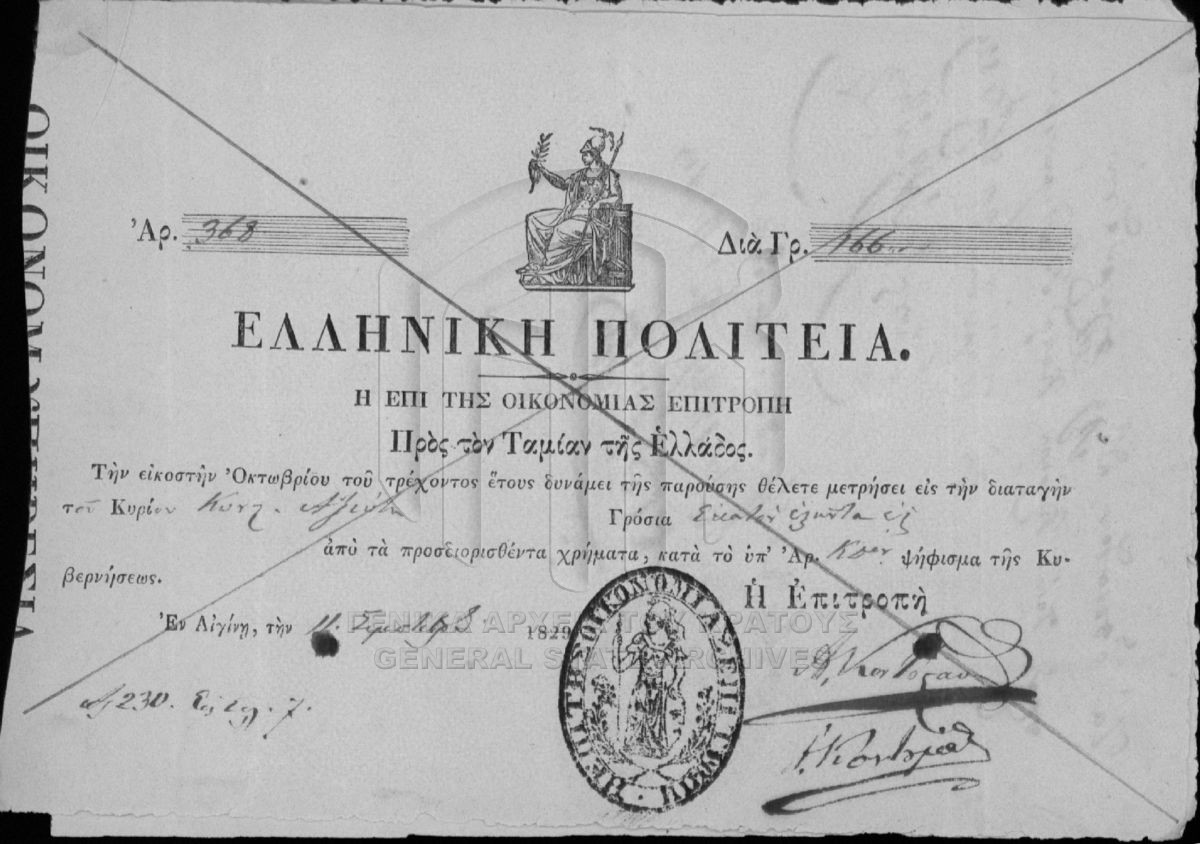 ΟΙΚΟΝΟΜ
Ἀρ. 368
Διὰ Γρ. 166
ΕΛΛΗΝΙΚΗ ΠΟΛΙΤΕΙΑ.
Η ΕΠΙ ΤΗΣ ΟΙΚΟΝΟΜΙΑΣ ΕΠΙΤΡΟΠΗ
Πρὸς τὸν Ταμίαν τῆς Ἑλλάδος.
Τὴν εἰκοστὴν Ὀκτωβρίου τοῦ τρέχοντος ἔτους δυνάμει τῆς παρούσης θέλετε μετρήσει εἰς τὴν διαταγὴν
τοῦ Κυρίου Γρόσια ἑκατὸν ἑξῆντα ἓξ
ἀπὸ τὰ προσδιορισθέντα χρήματα, κατὰ τὸ ὑπ' Ἀρ. ψήφισμα τῆς Κυ-
βερνήσεως.
Ἡ Ἐπιτροπὴ
Ἐν Αἰγίνῃ, τὴν 11 1829
ΓΕΝΙΚΑ ΑΡΧΕΙΑ ΤΟΥ ΚΡΑΤΟΥΣ
GENERAL STATE ARCHIVES
Η ΕΠΙ ΤΗΣ ΟΙΚΟΝΟΜΙΑΣ ΕΠΙΤΡΟΠΗ
230. 7.